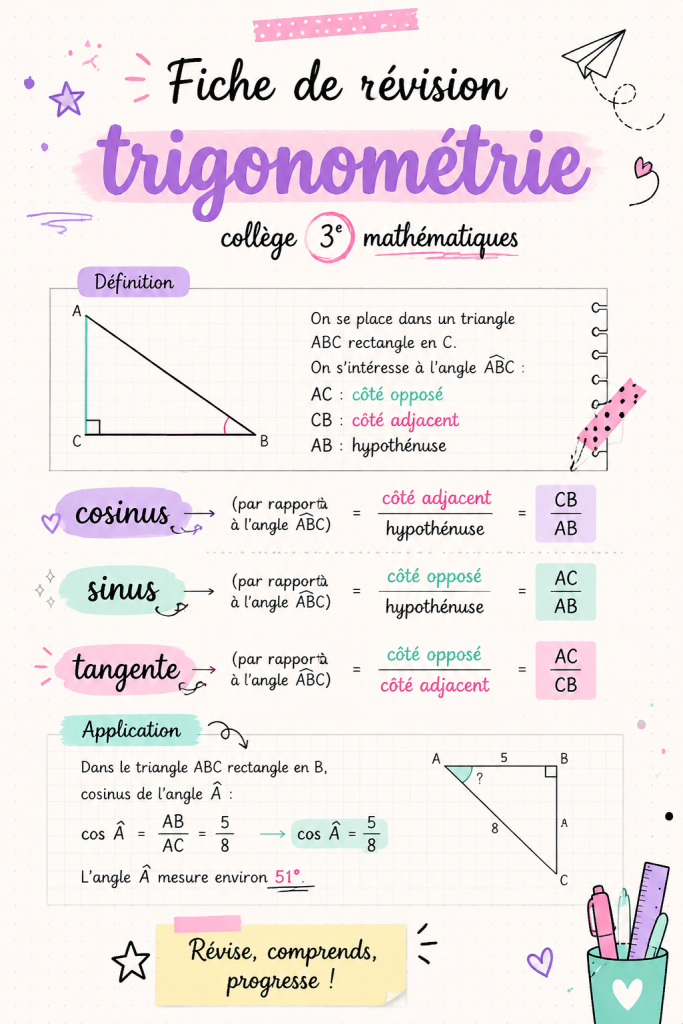 Fiche de révision
trigonométrie
collège 3ᵉ mathématiques
Définition
A
C
B
On se place dans un triangle
ABC rectangle en C.
On s'intéresse à l'angle A͡BC :
AC : côté opposé
CB : côté adjacent
AB : hypothénuse
cosinus → (par rapport à = côté adjacent = CB
à l'angle A͡BC) hypothénuse AB
sinus → (par rapport à = côté opposé = AC
à l'angle A͡BC) hypothénuse AB
tangente → (par rapport à = côté opposé = AC
à l'angle A͡BC) côté adjacent CB
Application
Dans le triangle ABC rectangle en B,
cosinus de l'angle Â :
cos Â = AB = 5 → cos Â = 5
AC 8 8
L'angle Â mesure environ 51°.
A 5 B
?
8 A
C
Révise, comprends,
progresse !